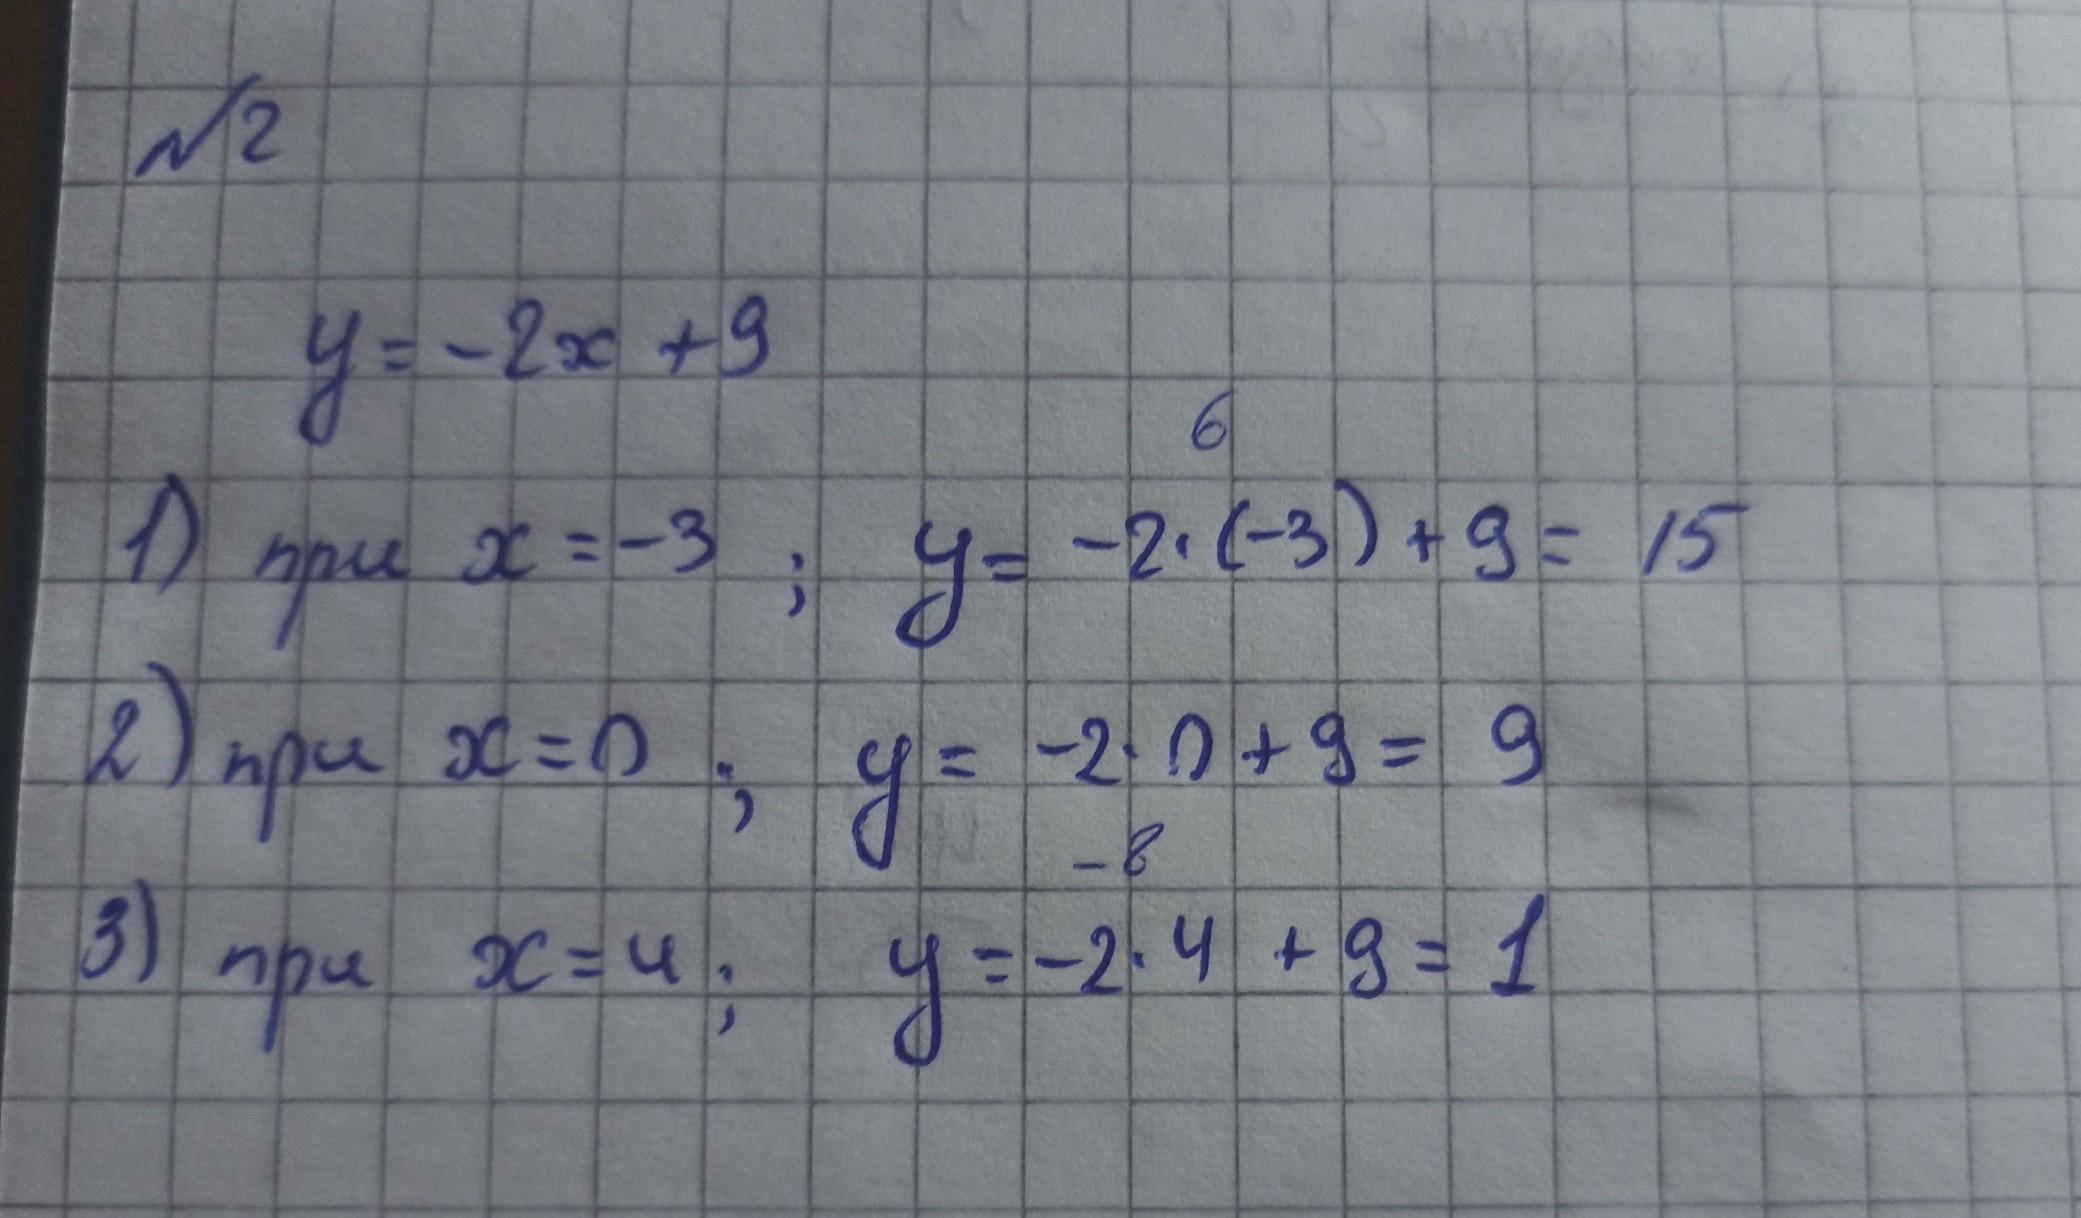 №2
y = -2x + 9
6
1) при x = -3 ; y = -2·(-3) + 9 = 15
2) при x = 0 ; y = -2·0 + 9 = 9
-8
3) при x = 4 ; y = -2·4 + 9 = 1